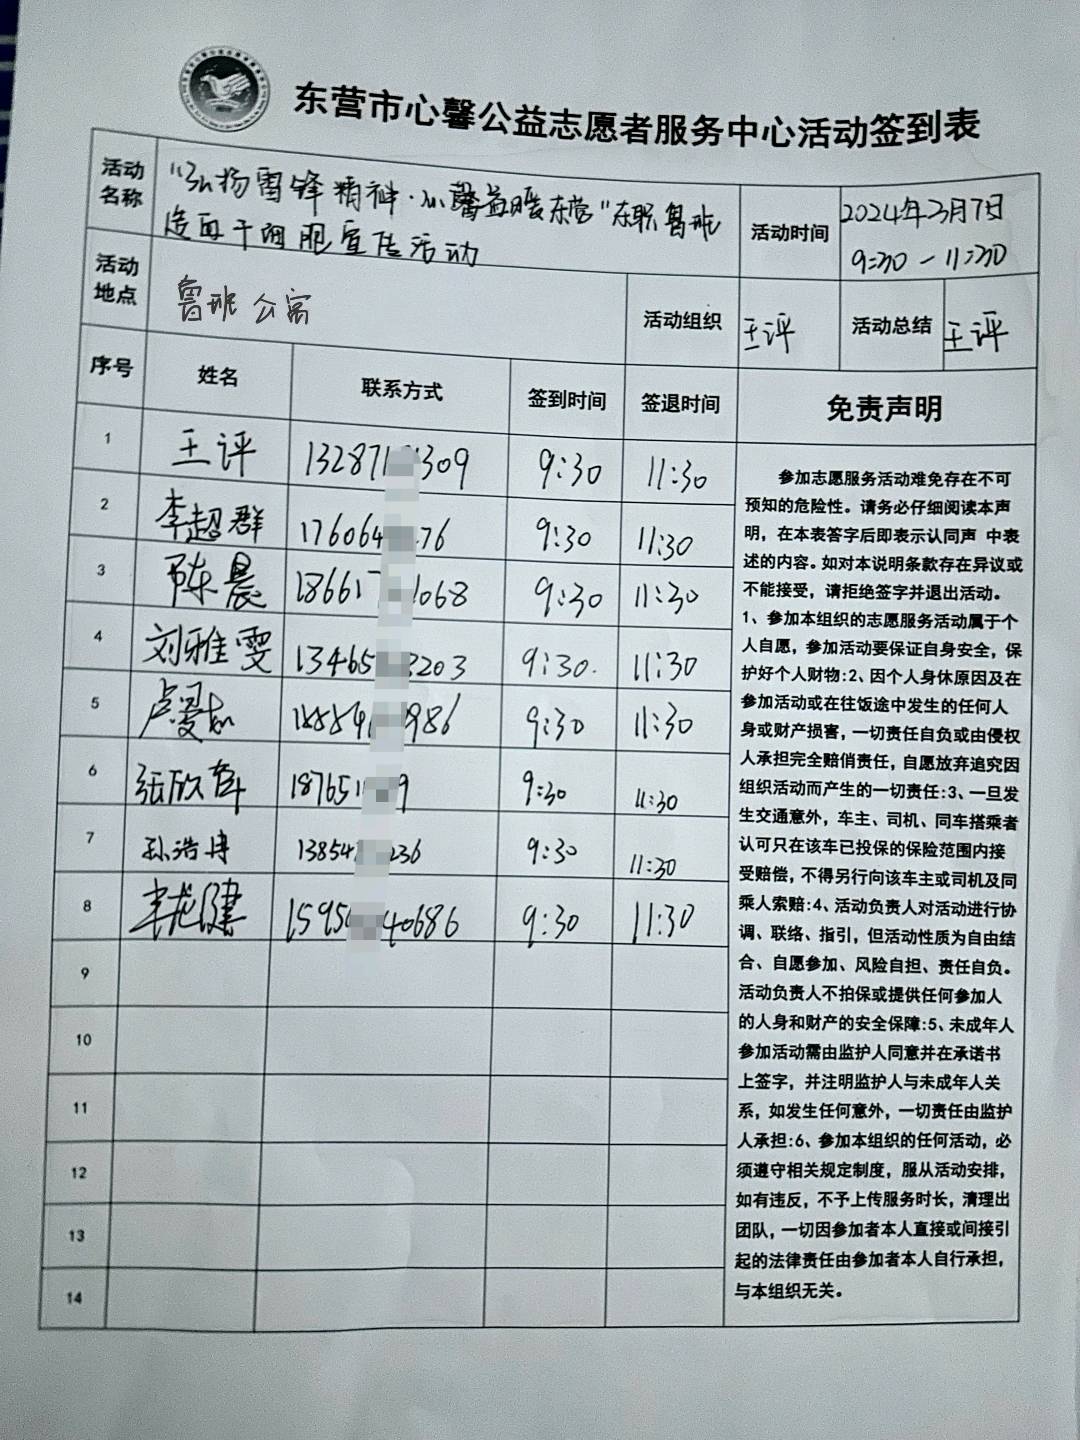 东营市心馨公益志愿者服务中心活动签到表
活动名称
"弘扬雷锋精神·心馨益暖东营"东职鲁班
造面干眼眼宣传活动
活动时间
2024年3月7日
9:30-11:30
活动地点
鲁班公寓
活动组织
王评
活动总结
王评
序号 姓名 联系方式 签到时间 签退时间 免责声明
1 王评 13287 1309 9:30 11:30
2 李超群 176064 76 9:30 11:30
3 陈晨 18661 1068 9:30 11:30
4 刘雅雯 13465 3203 9:30. 11:30
5 986 9:30 11:30
6 张欣 187651 9 9:30 11:30
7 孙浩 13854 236 9:30 11:30
8 健 1595 40686 9:30 11:30
9
10
11
12
13
14
参加志愿服务活动难免存在不可
预知的危险性。请务必仔细阅读本声
明，在本表签字后即表示认同声 中表
述的内容。如对本说明条款存在异议或
不能接受，请拒绝签字并退出活动。
1、参加本组织的志愿服务活动属于个
人自愿，参加活动要保证自身安全，保
护好个人财物:2、因个人身休原因及在
参加活动或在往饭途中发生的任何人
身或财产损害，一切责任自负或由侵权
人承担完全赔俏责任，自愿放弃追究因
组织活动而产生的一切责任:3、一旦发
生交通意外，车主、司机、同车搭乘者
认可只在该车已投保的保险范围内接
受赔偿，不得另行向该车主或司机及同
乘人索赔:4、活动负责人对活动进行协
调、联络、指引，但活动性质为自由结
合、自愿参加、风险自担、责任自负。
活动负责人不拍保或提供任何参加人
的人身和财产的安全保障:5、未成年人
参加活动需由监护人同意并在承诺书
上签字，并注明监护人与未成年人关
系，如发生任何意外，一切责任由监护
人承担:6、参加本组织的任何活动，必
须遵守相关规定制度，服从活动安排，
如有违反，不予上传服务时长，清理出
团队，一切因参加者本人直接或间接引
起的法律责任由参加者本人自行承担，
与本组织无关。